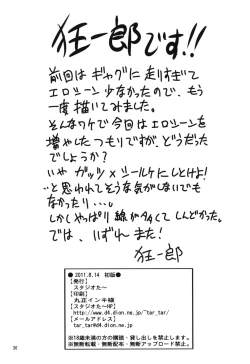 狂一郎です!!
前回はギャグに走りすぎて
エロシーン少なかったので、もう
一度描いてみました。
そんなワケで今回はエロシーンを
増やしたつもりですが、どうだった
でしょうか?
いや ガッツ×シールケにしとけよ!
…と思われてそうな気がしないでも
なかったり…。
しかしやっぱり線が多くてしんどかった。
では、いずれまた!
狂一郎
● 2011.8.14 初版●
【発行】
スタジオた〜
【印刷】
丸正インキ様
【スタジオた〜HP】
http://www.d4.dion.ne.jp/˜tar_tar/
【メールアドレス】
tar_tar@d4.dion.ne.jp
※18歳未満の方の購読・貸し出しを禁止します。
※無断転載・無断配布・無断アップロード禁止。
30